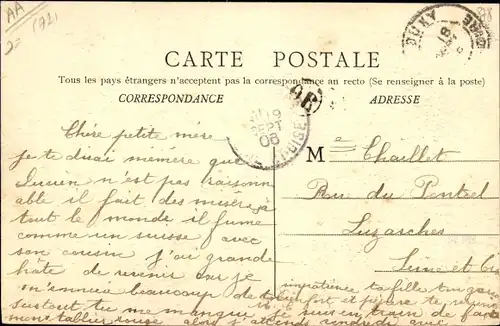 AA
(91)
CARTE POSTALE
Tous les pays étrangers n'acceptent pas la correspondance au recto (Se renseigner à la poste)
CORRESPONDANCE
ADRESSE
19
SEPT
06
Chère petite mère
je te dirai mémère que
Lucien n'est pas raisonn
able il fait des misères à
tout le monde il fume
comme un suisse avec
son cousin j'ai grande
hâte de revenir car je
m'ennuie beaucoup de toi
surtout tu me manque
M Chaillet
Rue du
Luzarches
Seine et
impatience ta fille
fort et père te
je suis en train de faire
mon tablier rouge alors j'attends